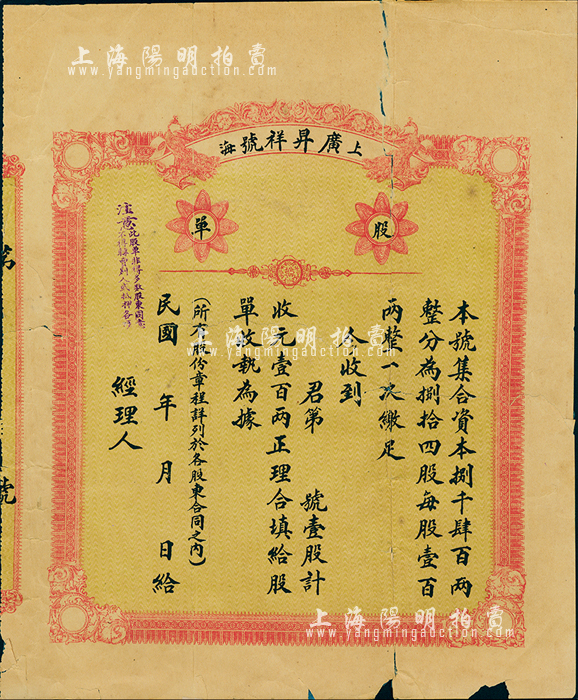 上海陽明拍賣
www.yangmingauction.com
上海廣昇祥號
股單
本號集合資本捌千肆百兩
整分為捌拾四股每股壹百
两整一次繳足
今收到
君第 號壹股計
收元壹百两正理合填給股
單收執為據
(所有股份章程詳列於各股東合同之內)
民國 年 月 日給
經理人
注意此股單非得多数股東同意
不得轉賣對人或抵押各項
第 號
上海陽明拍賣
www.yangmingauction.com
上海陽明拍賣
www.yangmingauction.com